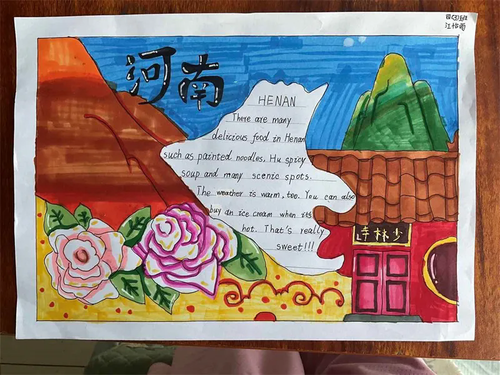 河南
HENAN
There are many
delicious food in Henan
such as painted noodles. Hu spicy
soup and many scenic spots.
The weather is warm, too. You can also
buy an ice cream when it's
hot. That's really
sweet!!!
寺林少